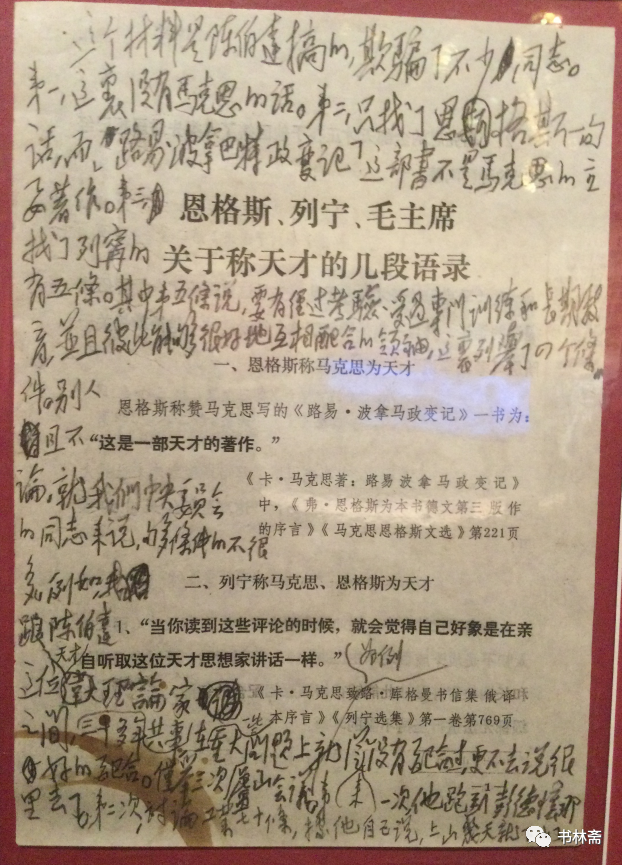 这个材料是陈伯達搞的,欺騙了不少同志。
第一,这裏没有馬克思的话。第二只找了恩格斯的
话,而路易波拿巴特政变记了这部書不是馬克思的主
要著作。第三
恩格斯、列宁、毛主席
找了列甯的
关于称天才的几段语录
有五條。其中第五條说,要有经过考驗、受过专门训練和长期教
育,並且彼此能够很好地互相配合的领袖,这裏列舉了四个條
一、恩格斯称马克思为天才
件。别人
恩格斯称赞马克思写的《路易·波拿马政变记》一书为:
且不
“这是一部天才的著作。”
论,就我們中央委員会
《卡·马克思著:路易波拿马政变记》
中,《弗·恩格斯为本书德文第三版作
的同志来说,够條件的不很
的序言》《马克思恩格斯文选》第221页
多。例如我
二、列宁称马克思、恩格斯为天才
跟陈伯達
1、“当你读到这些评论的时候,就会觉得自己好象是在亲
天才
自听取这位天才思想家讲话一样。”
为例
这位 理論家
《卡·马克思致路·库格曼书信集 俄译
本序言》《列宁选集》第一卷第769页
之间,三十多年共事,在重大问题上就没有配合过,更不去说很
好的配合。僅舉三次廬山会議 第一次,他跑到彭德懷那
里去了。第二次,讨论工業七十條,據他自己说,上山幾天就
书林斋